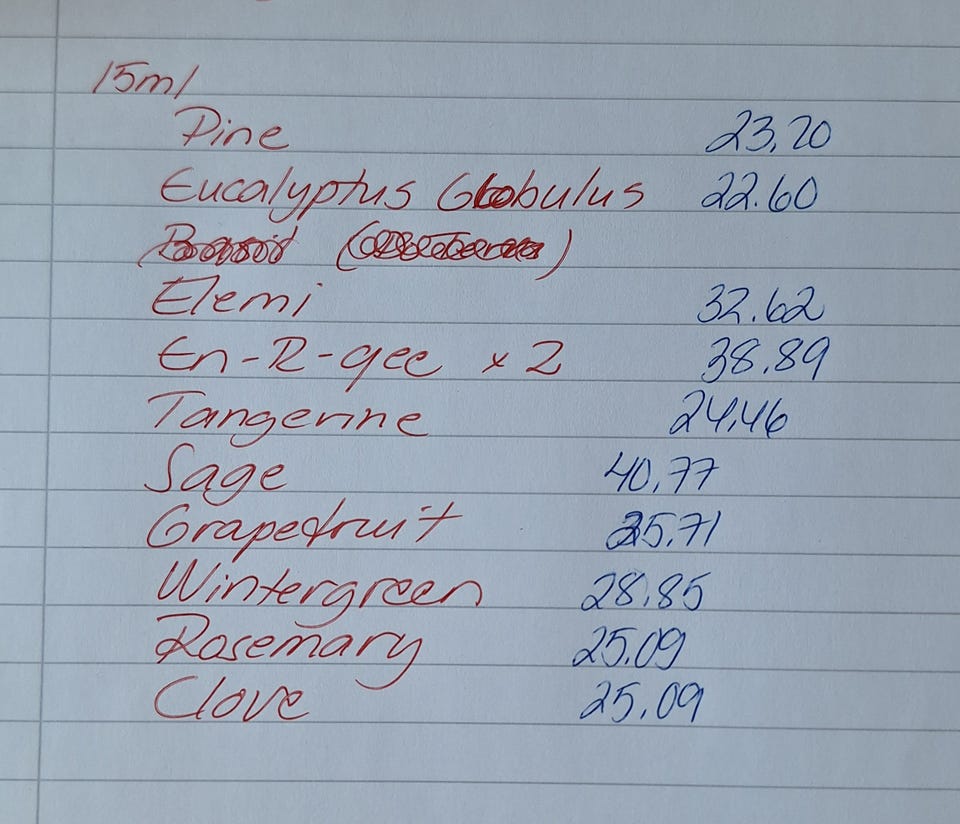 15ml
Pine 23,20
Eucalyptus Globulus 22.60
Elemi 32.62
En-R-gee x 2 38.89
Tangerine 24,46
Sage 40,77
Grapefruit 25,71
Wintergreen 28.85
Rosemary 25.09
Clove 25.09